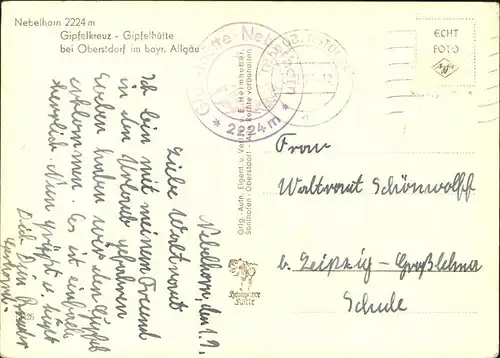 Nebelhorn 2224 m
Gipfelkreuz - Gipfelhütte
bei Oberstdorf im bayr. Allgäu
ECHT
FOTO
* 2224m *
Orig.-Aufn. Eigent u. Verlag v. E. Heimhuber,
Sonthofen - Oberstdorf - Alle Rechte vorbehalten
Nebelhorn, den 1.9.
Liebe Waltraut
Ich bin mit meinem Freund
in den Urlaub gefahren
Soeben haben wir den Gipfel
erklommen. Es ist einfach
herrlich. Nun grüßt u. küßt
Dich Dein Bruder
Gerhard.
Frau
Waltraut Schönwolff
b. Leipzig - Großlehna
Schule